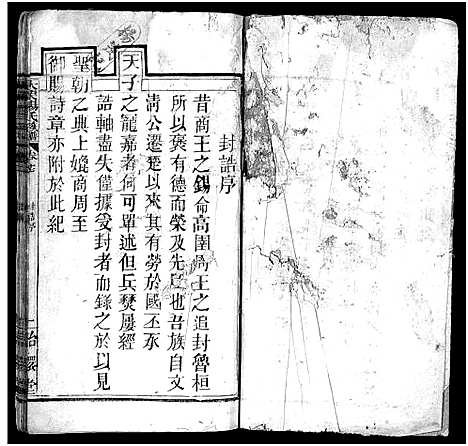 封誥序
昔商王之錫命高圉周王之追封魯桓
所以褒有德而榮及先也吾族自文
清公遷楚以來其有勞於國丕承
天子之寵嘉者何可單述但兵燹屢經
誥軸盡失僅據受封者而錄之於以見
聖朝之典上媲商周至
御賜詩章亦附於此紀